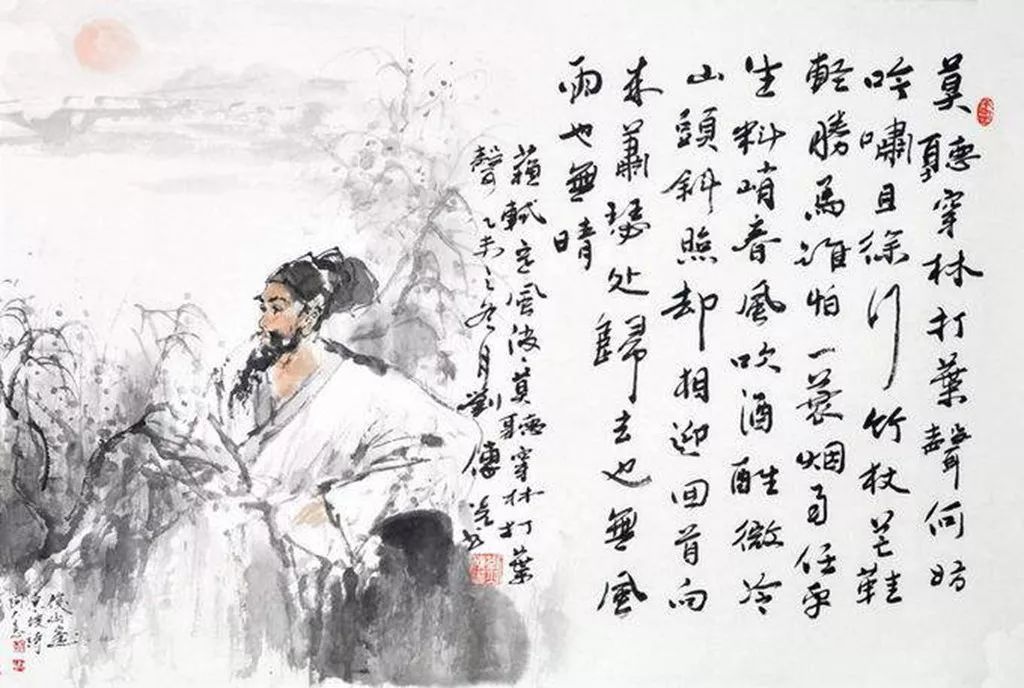 莫聽穿林打葉聲何妨
吟嘯且徐行竹杖芒鞋
輕勝馬誰怕一蓑烟雨任平
生料峭春風吹酒醒微冷
山頭斜照却相迎回首向
来蕭瑟处歸去也無風
雨也無晴
蘇軾定風波莫聽穿林打葉
聲乙未之冬月劉傳
東坡詩